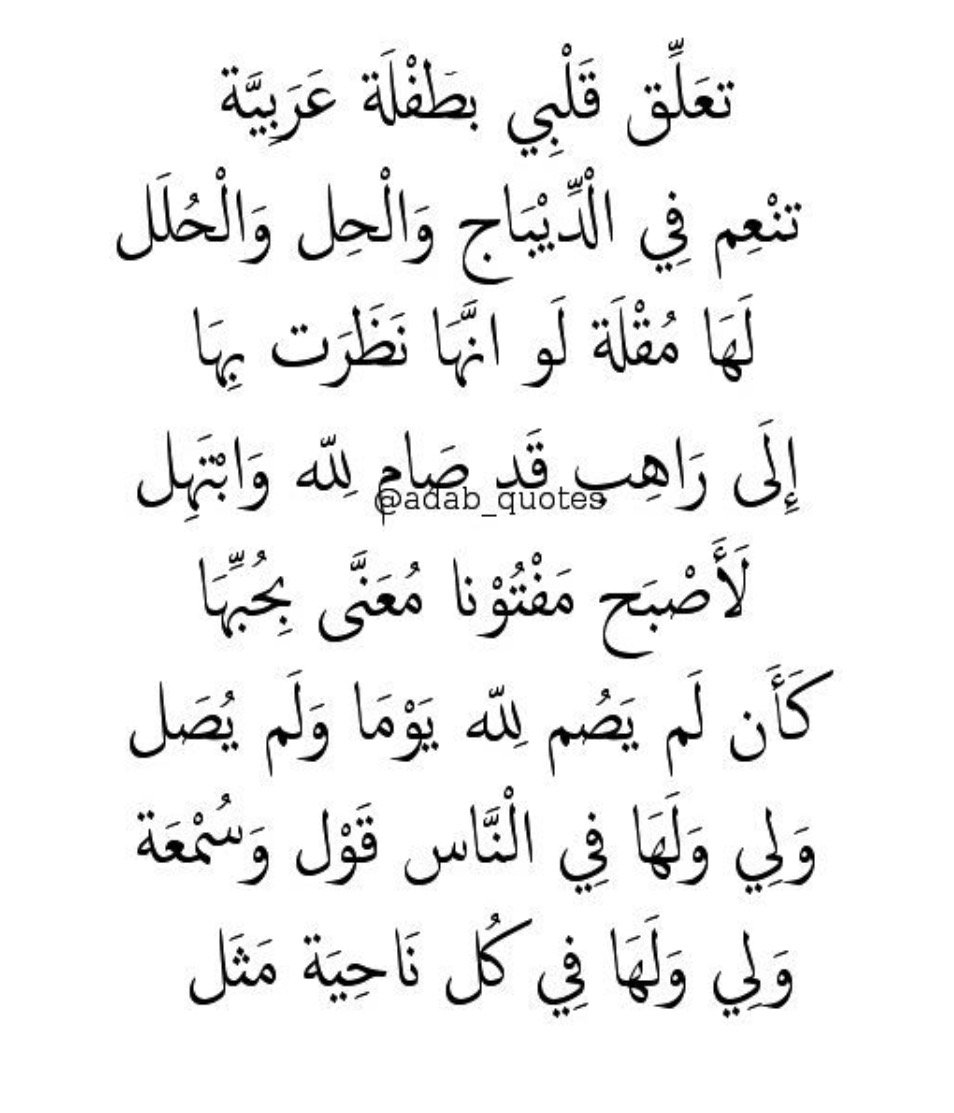 تعَلِّق قَلْبِي بطَفْلَة عَرَبِيَّة
تنْعِم فِي الْدِّيْبَاج وَالْحِل وَالْحُلَل
لَهَا مُقْلَة لَو انَّهَا نَظَرَت بِهَا
إِلَى رَاهِب قَد صَام لِلّه وَابْتَهِل
@adab_quotes
لَأَصْبَح مَفْتُوْنا مُعَنَّى بِحُبِّهَا
كَأَن لَم يَصُم لِلّه يَوْمَا وَلَم يُصَل
وَلِي وَلَهَا فِي الْنَّاس قَوْل وَسُمْعَة
وَلِي وَلَهَا فِي كُل نَاحِيَة مَثَل